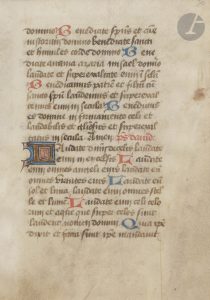 domino Benedicite spiritus et ani
iustorum domino benedicite sancti
et humiles corde domino Be
dicite anania azaria misael domino
laudate et superexaltate eum in secula
Benedicamus patrem et filium
sancto spiritu laudemus et superexal
eum in secula Benedictus
domine in celi et
laudabilis et gloriosus et superexal
in secula Amen ps david
Laudate dominum de celis
eum in excelsis Laudate
eum omnes angeli eius laudate
omnes virtutes eius Laudate eum
sol et luna laudate eum omnes stel
le et lumen Laudate eum celi celo
rum et aque que super celos sunt
laudent nomen domini Quia ipse
dixit et facta sunt ipse mandavit